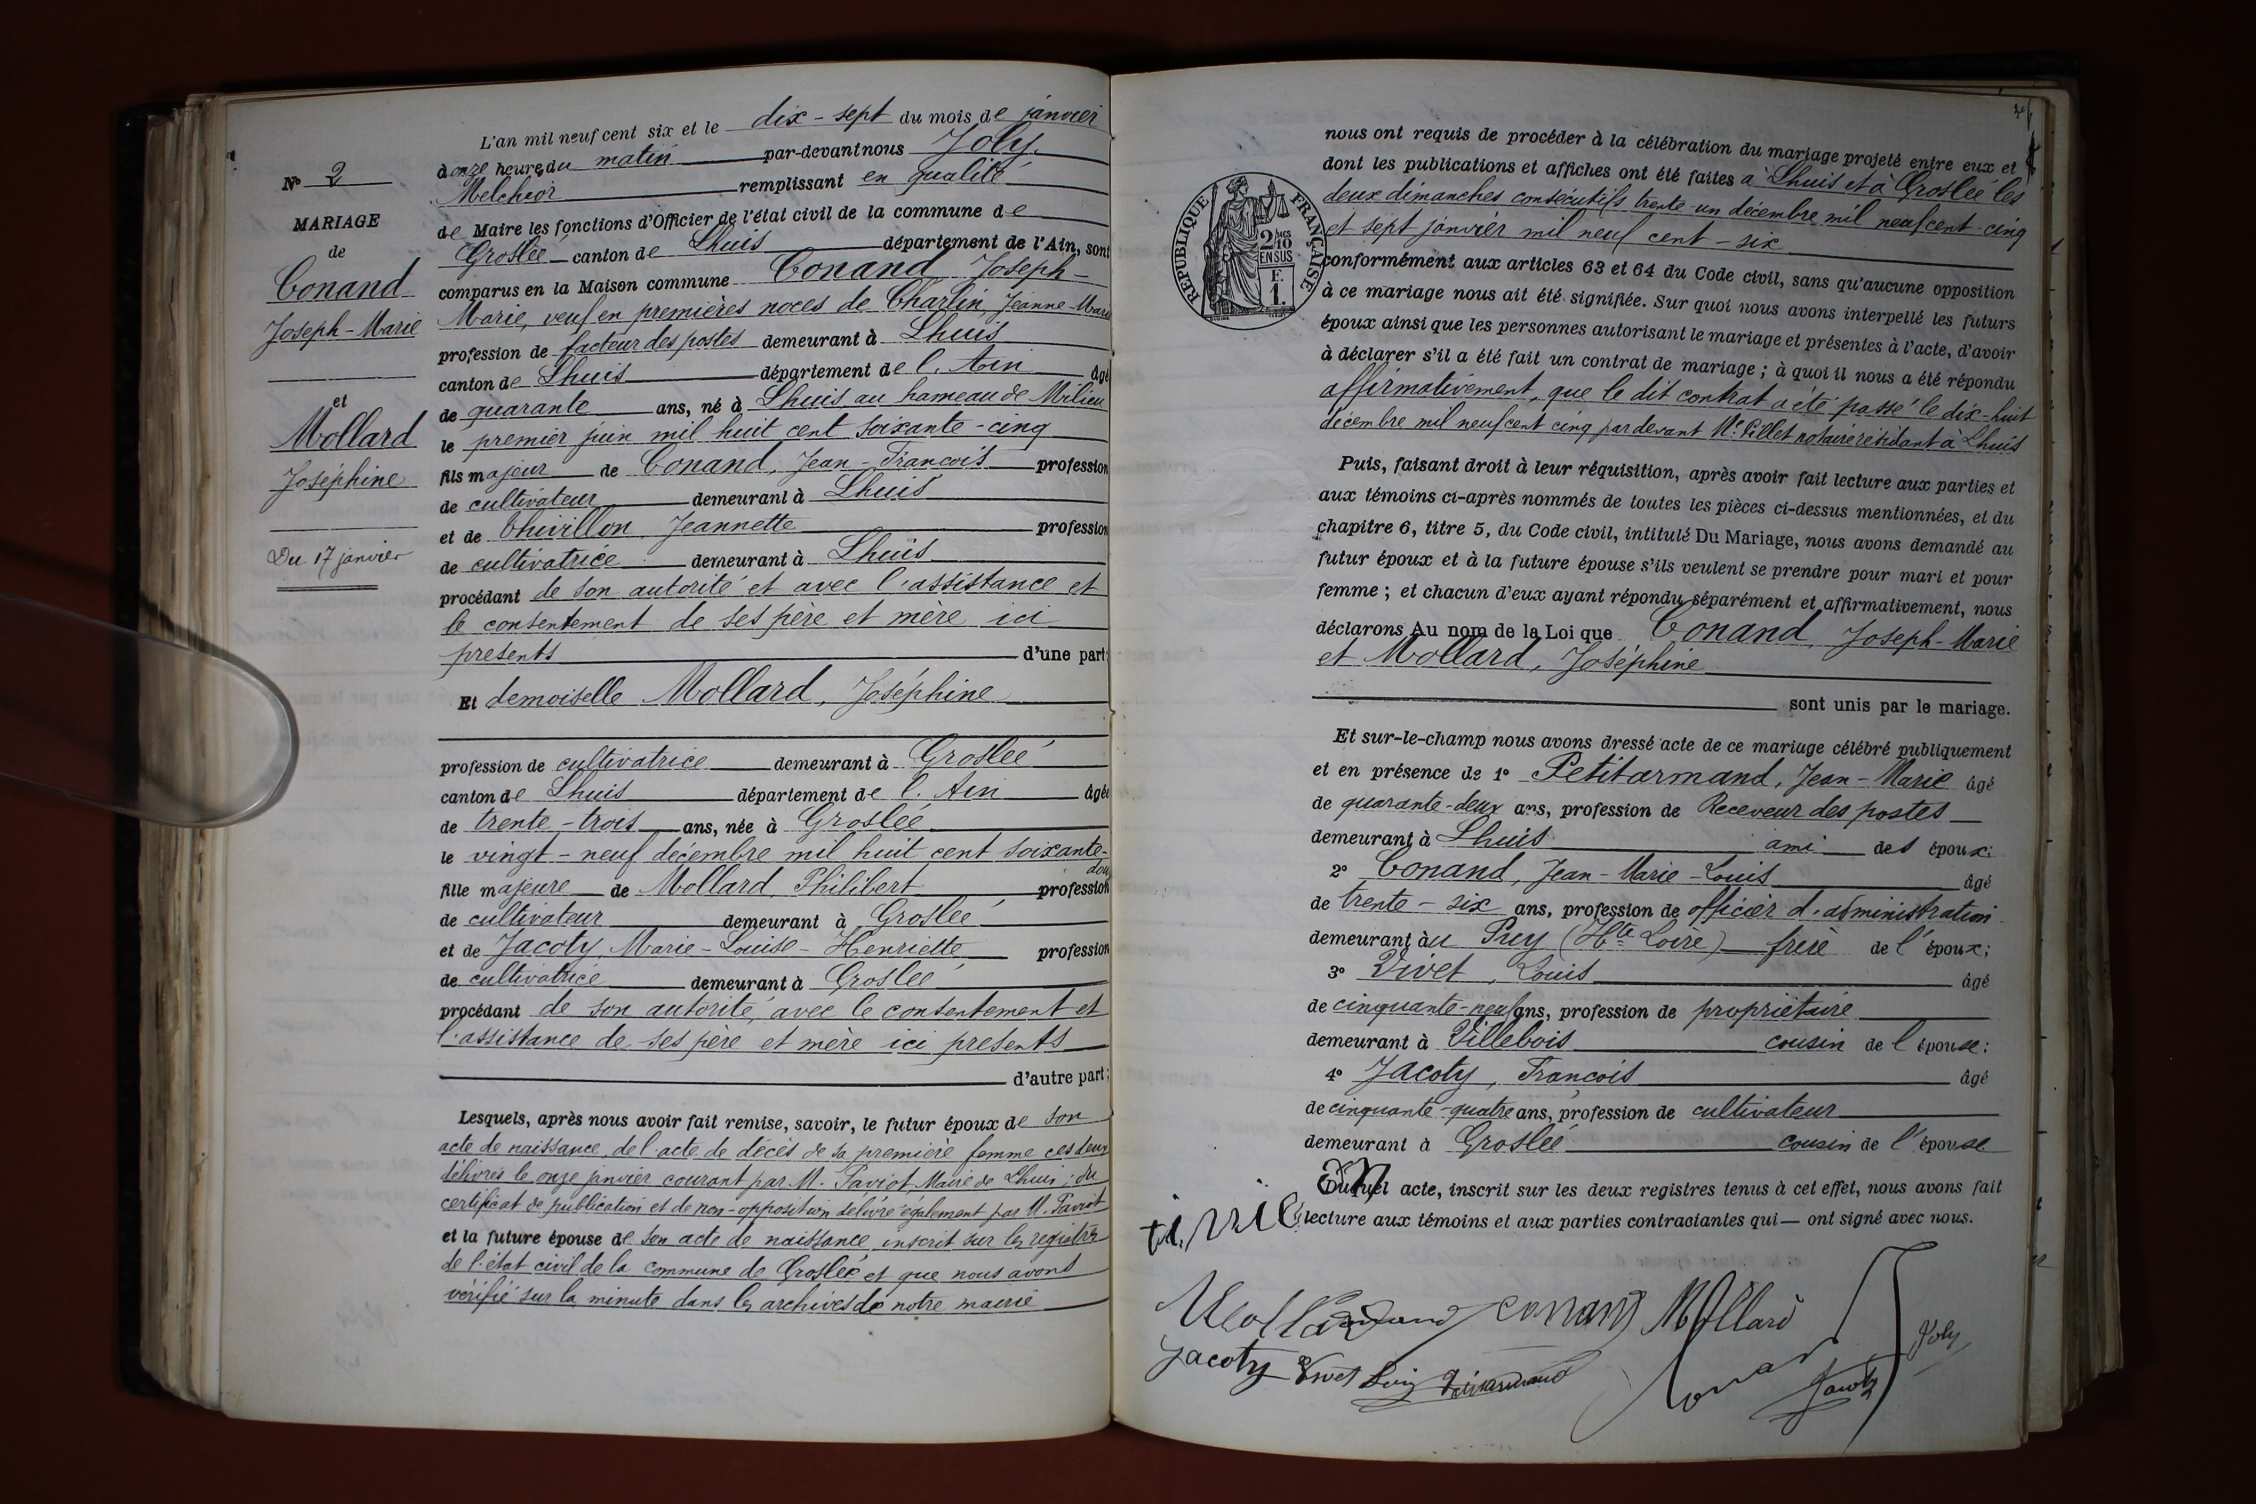 N° 2
MARIAGE
de
Conand
Joseph-Marie
et
Mollard
Joséphine
Du 17 janvier
L'an mil neuf cent six et le dix-sept du mois de janvier
à onze heures du matin par-devant nous Joly
Melchior remplissant en qualité
de Maire les fonctions d'Officier de l'état civil de la commune de
Groslée canton de Lhuis département de l'Ain, sont
comparus en la Maison commune Conand Joseph-
Marie, veuf en premières noces de Charlin, Jeanne-Marie
profession de facteur des postes demeurant à Lhuis
canton de Lhuis département de l'Ain âgé
de quarante ans, né à Lhuis au hameau de Milieu
le premier juin mil huit cent soixante-cinq
fils majeur de Conand, Jean-François profession
de cultivateur demeurant à Lhuis
et de Chuvillon Jeannette profession
de cultivatrice demeurant à Lhuis
procédant de son autorité et avec l'assistance et
le consentement de ses père et mère ici
présents d'une part;
Et demoiselle Mollard, Joséphine
profession de cultivatrice demeurant à Groslée
canton de Lhuis département de l'Ain âgée
de trente-trois ans, née à Groslée
le vingt-neuf décembre mil huit cent soixante-
douze
fille majeure de Mollard, Philibert profession
de cultivateur demeurant à Groslée
et de Jacoty, Marie-Louise-Henriette profession
de cultivatrice demeurant à Groslée
procédant de son autorité, avec le consentement et
l'assistance de ses père et mère ici présents
d'autre part;
Lesquels, après nous avoir fait remise, savoir, le futur époux de son
acte de naissance, de l'acte de décès de sa première femme ces deux
délivrés le onze janvier courant par M. Paviot, Maire de Lhuis; du
certificat de publication et de non-opposition délivré également par M. Paviot
et la future épouse de son acte de naissance inscrit sur les registres
de l'état civil de la commune de Groslée et que nous avons
vérifié sur la minute dans les archives de notre mairie
RÉPUBLIQUE FRANÇAISE
2/10
EN SUS
F.
1.
nous ont requis de procéder à la célébration du mariage projeté entre eux et
dont les publications et affiches ont été faites à Lhuis et à Groslée les
deux dimanches consécutifs trente-un décembre mil neuf cent-cinq
et sept janvier mil neuf cent-six
conformément aux articles 63 et 64 du Code civil, sans qu'aucune opposition
à ce mariage nous ait été signifiée. Sur quoi nous avons interpellé les futurs
époux ainsi que les personnes autorisant le mariage et présentes à l'acte, d'avoir
à déclarer s'il a été fait un contrat de mariage; à quoi il nous a été répondu
affirmativement, que le dit contrat a été passé le dix-huit
décembre mil neuf cent cinq par devant Me Pillet notaire résidant à Lhuis
Puis, faisant droit à leur réquisition, après avoir fait lecture aux parties et
aux témoins ci-après nommés de toutes les pièces ci-dessus mentionnées, et du
chapitre 6, titre 5, du Code civil, intitulé Du Mariage, nous avons demandé au
futur époux et à la future épouse s'ils veulent se prendre pour mari et pour
femme; et chacun d'eux ayant répondu séparément et affirmativement, nous
déclarons Au nom de la Loi que Conand, Joseph-Marie
et Mollard, Joséphine
sont unis par le mariage.
Et sur-le-champ nous avons dressé acte de ce mariage célébré publiquement
et en présence de 1° Petitarmand, Jean-Marie âgé
de quarante-deux ans, profession de Receveur des postes
demeurant à Lhuis ami des époux;
2° Conand, Jean-Marie-Louis âgé
de trente-six ans, profession de officier d'administration
demeurant au Puy (Hte Loire) frère de l'époux;
3° Vivet, Louis âgé
de cinquante-neuf ans, profession de propriétaire
demeurant à Villebois cousin de l'épouse;
4° Jacoty, François âgé
de cinquante-quatre ans, profession de cultivateur
demeurant à Groslée cousin de l'épouse
Duquel acte, inscrit sur les deux registres tenus à cet effet, nous avons fait
lecture aux témoins et aux parties contractantes qui — ont signé avec nous.
Mollard Conand Mollard
Joly
Jacoty Vivet Louis Petitarmand Conand Jacoty